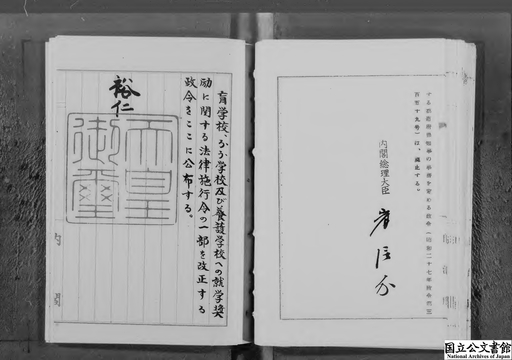 する都道府県知事の事務を定める政令(昭和二十七年政令第三
百五十九号)は、廃止する。
内閣総理大臣
岸信介
盲学校、ろう学校及び養護学校への就学奨
励に関する法律施行令の一部を改正する
政令をここに公布する。
裕仁
天皇
御璽
国立公文書館
National Archives of Japan